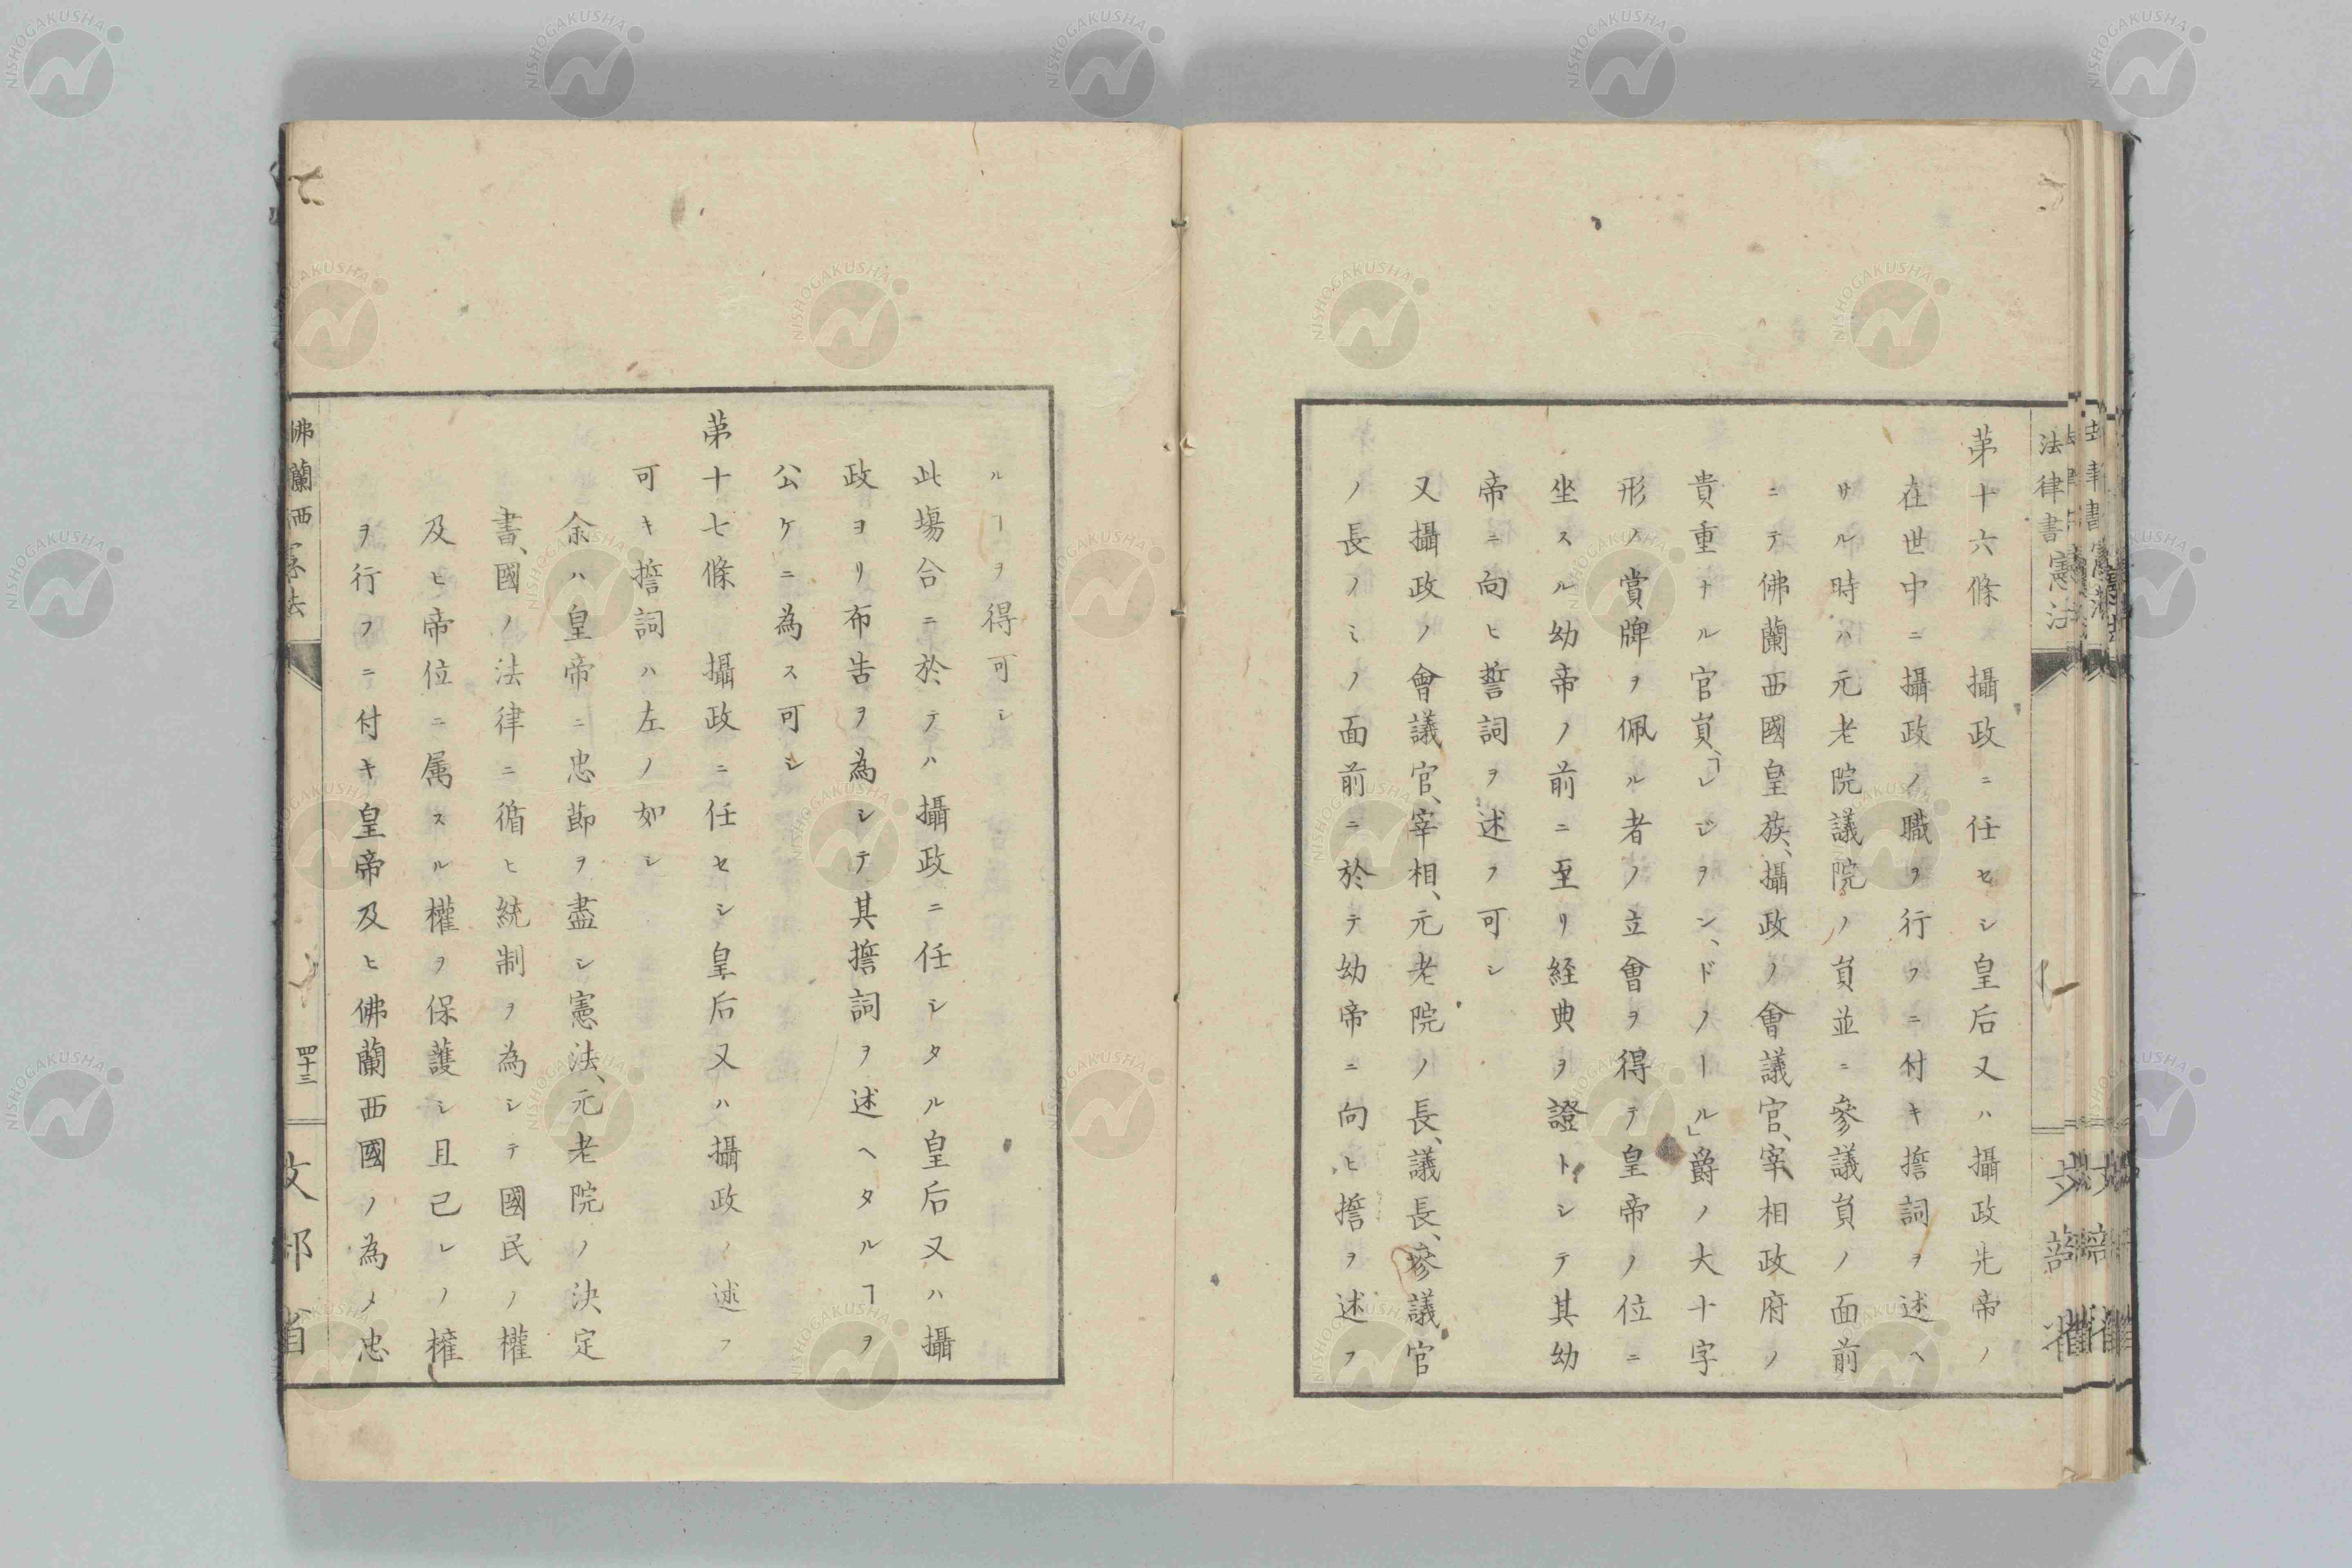 第十六條　攝政ニ任セシ皇后又ハ攝政先帝ノ
在世中ニ攝政ノ職ヲ行フニ付キ擔詞ヲ述ヘ
サル時ハ元老院議院ノ員並ニ參議員ノ面前
ニテ佛蘭西國皇族、攝政ノ會議官、宰相政府ノ
貴重ナル官員、「レジヲン、ドノール」爵ノ大十字
形ノ賞牌ヲ佩ル者ノ立會ヲ得テ皇帝ノ位ニ
坐スル幼帝ノ前ニ至リ経典ヲ證トシテ其幼
帝ニ向ヒ誓詞ヲ述フ可シ
又攝政ノ會議官、宰相、元老院ノ長、議長、參議官
ノ長ノミノ面前ニ於テ幼帝ニ向ヒ擔ヲ述フ
ルヿヲ得可シ
此塲合ニ於テハ攝政ニ任シタル皇后又ハ攝
政ヨリ布告ヲ為シテ其擔詞ヲ述ヘタルヿヲ
公ケニ為ス可シ
第十七條　攝政ニ任セシ皇后又ハ攝政ノ述フ
可キ擔詞ハ左ノ如シ
余ハ皇帝ニ忠節ヲ盡シ憲法、元老院ノ決定
書、國ノ法律ニ循ヒ統制ヲ為シテ國民ノ權
及ヒ帝位ニ属スル權ヲ保護シ且己レノ権
ヲ行フニ付キ皇帝及ヒ佛蘭西國ノ為メ忠
佛蘭西憲法
四十三
文部省
法律書憲法
NISHOGAKUSHA